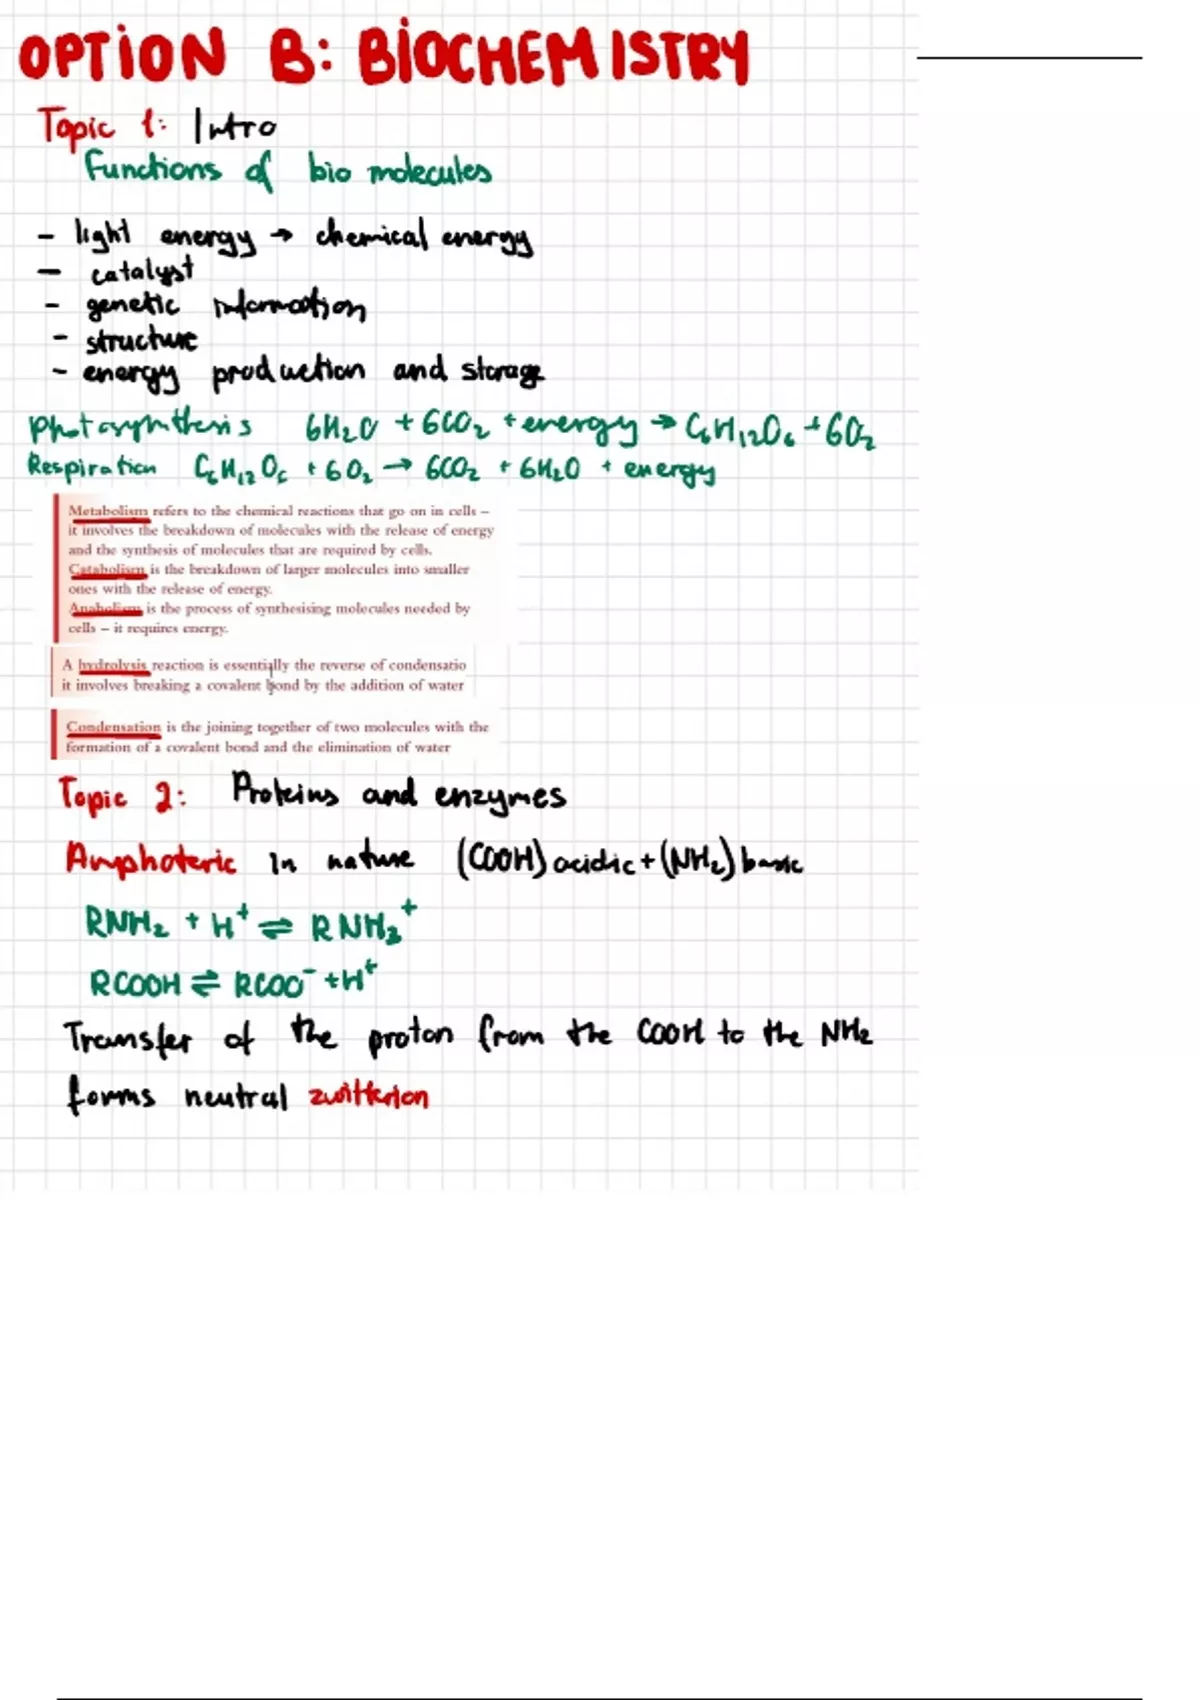 OPTION B: BIOCHEMISTRY
Topic 1: Intro
Functions of bio molecules
- light energy → chemical energy
- catalyst
- genetic information
- structure
- energy production and storage
Photosynthesis 6H₂O + 6CO₂ + energy → C₆H₁₂O₆ + 6O₂
Respiration C₆H₁₂O₆ + 6O₂ → 6CO₂ + 6H₂O + energy
Metabolism refers to the chemical reactions that go on in cells –
it involves the breakdown of molecules with the release of energy
and the synthesis of molecules that are required by cells.
Catabolism is the breakdown of larger molecules into smaller
ones with the release of energy.
Anabolism is the process of synthesising molecules needed by
cells – it requires energy.
A hydrolysis reaction is essentially the reverse of condensatio
it involves breaking a covalent bond by the addition of water
Condensation is the joining together of two molecules with the
formation of a covalent bond and the elimination of water
Topic 2: Proteins and enzymes
Amphoteric in nature (COOH) acidic + (NH₂) basic
RNH₂ + H⁺ ⇌ RNH₃⁺
RCOOH ⇌ RCOO⁻ + H⁺
Transfer of the proton from the COOH to the NH₂
forms neutral zwitterion